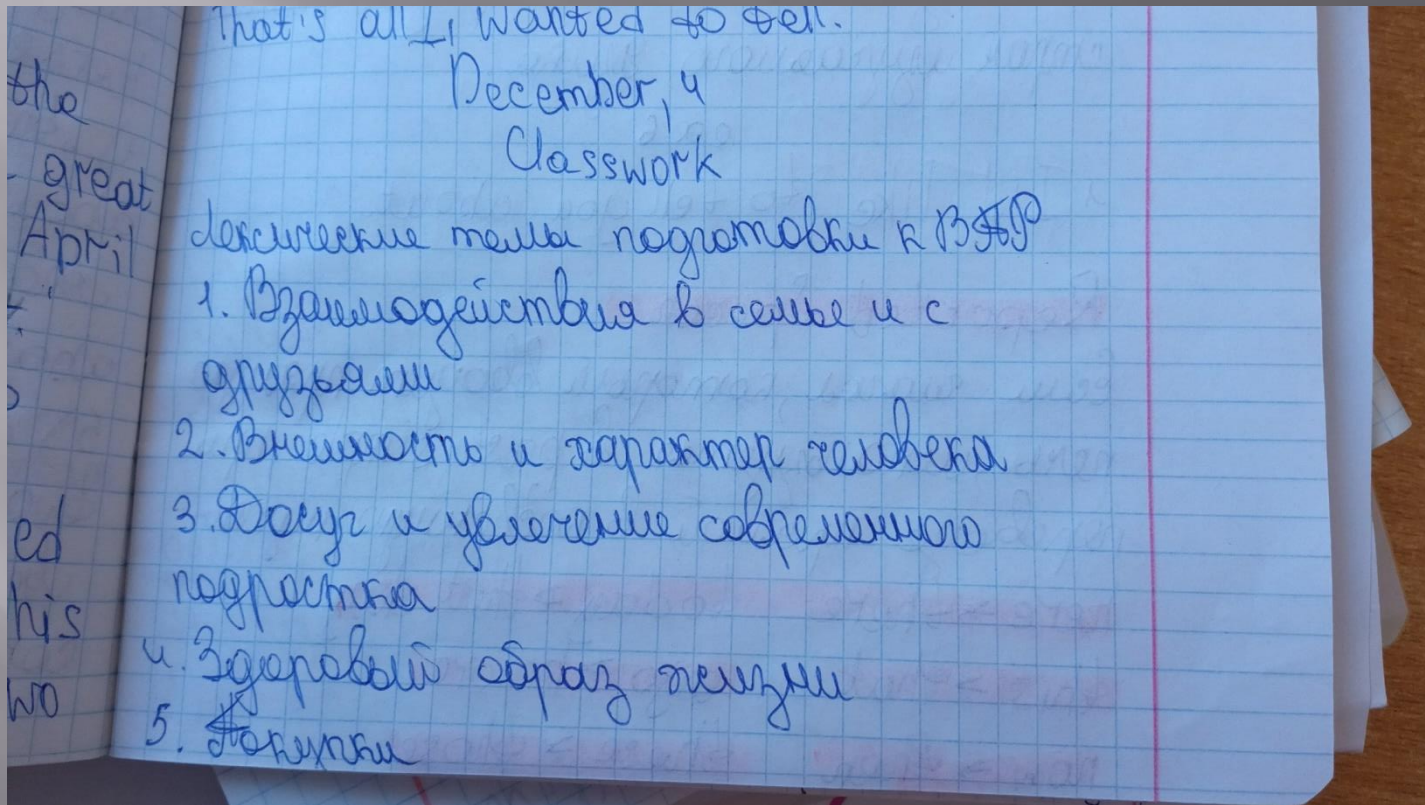 That's all I, wanted to tell.
December, 4
Classwork
Лексические темы подготовки к ВПР
1. Взаимодействия в семье и с
друзьями
2. Внешность и характер человека
3. Досуг и увлечение современного
подростка
4. Здоровый образ жизни
5. Покупки
the
great
April
ed
his
wo